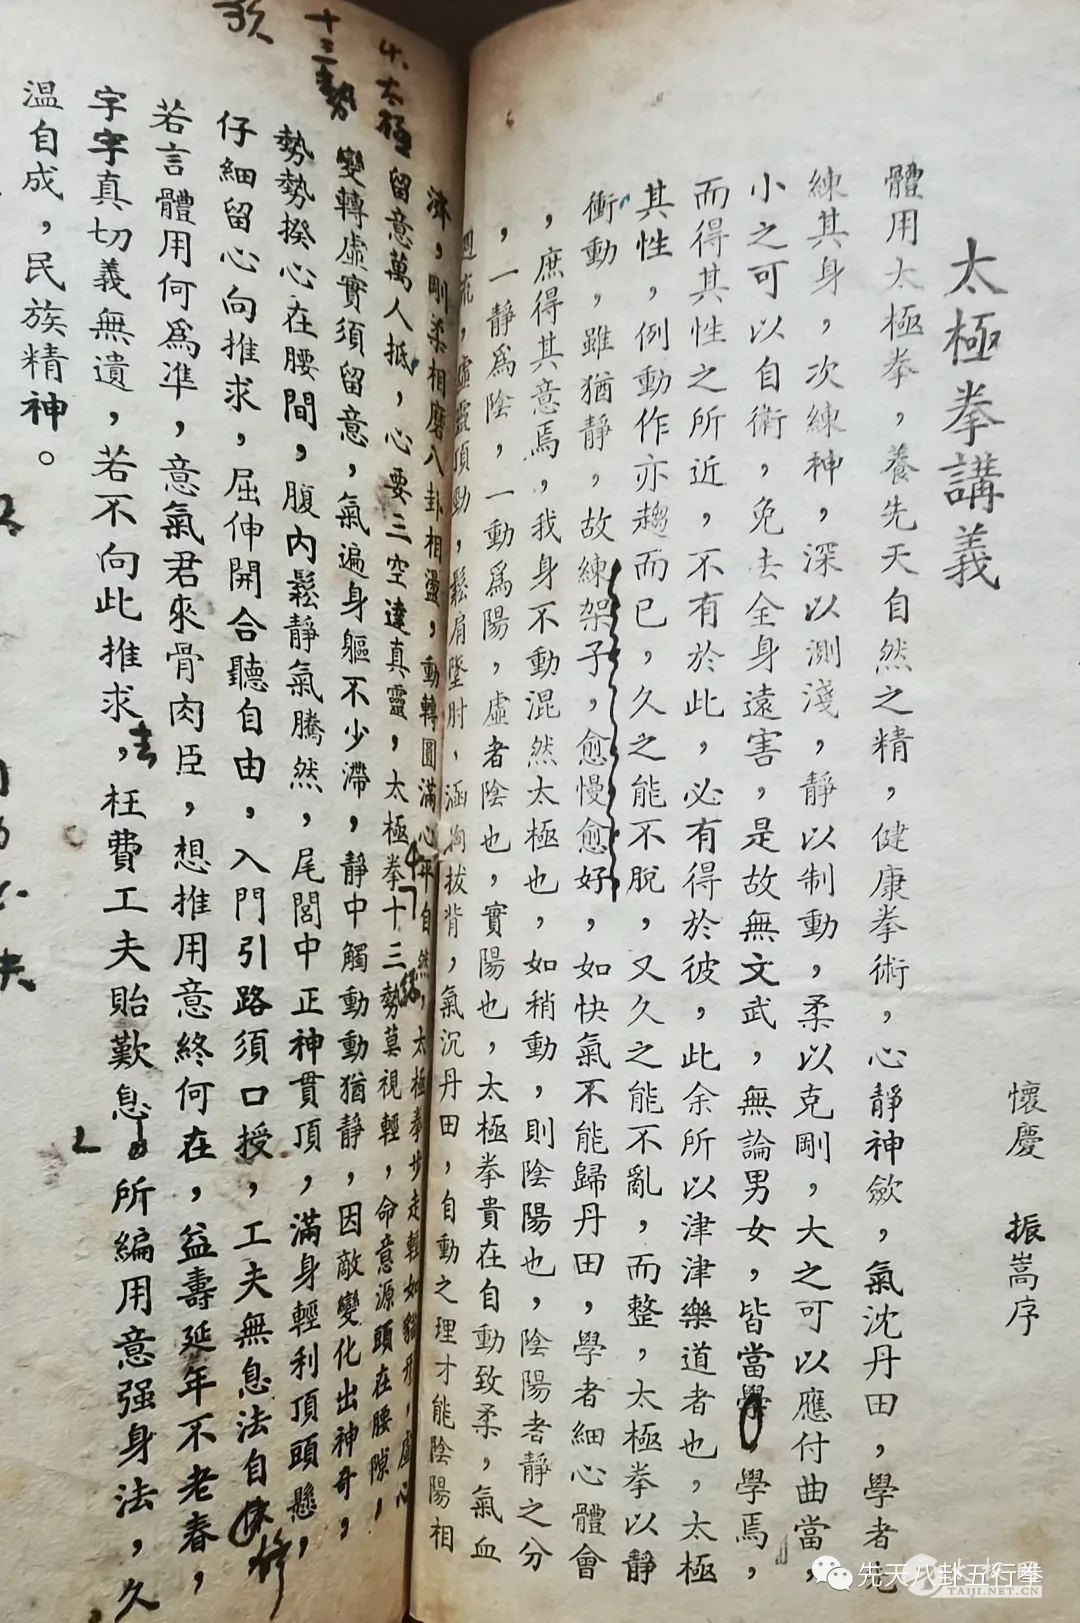 太極拳講義
懷慶 振嵩序
體用太極拳，養先天自然之精，健康拳術，心靜神斂，氣沈丹田，學者先
練其身，次練神，深以測淺，靜以制動，柔以克剛，大之可以應付曲當，
小之可以自衛，免去全身遠害，是故無文武，無論男女，皆當學，學焉，
而得其性之所近，不有於此，必有得於彼，此余所以津津樂道者也，太極
其性，例動作亦趨而已，久之能不脫，又久之能不亂，而整，太極拳以靜
衝動，雖猶靜，故練架子，愈慢愈好，如快氣不能歸丹田，學者細心體會
，庶得其意焉，我身不動混然太極也，如稍動，則陰陽也，陰陽者靜之分
，一靜爲陰，一動爲陽，虛者陰也，實陽也，太極拳貴在自動致柔，氣血
週流，虛靈頂勁，鬆肩墜肘，涵胸拔背，氣沉丹田，自動之理才能陰陽相
濟，剛柔相磨八卦相盪，動轉圓滿心平自然，太極拳步走轉如貓形，虛心
留意萬人抵，心要三空達真靈，太極拳十三勢莫視輕，命意源頭在腰隙，
變轉虛實須留意，氣遍身軀不少滯，靜中觸動動猶靜，因敵變化出神奇，
勢勢揆心在腰間，腹內鬆靜氣騰然，尾閭中正神貫頂，滿身輕利頂頭懸，
仔細留心向推求，屈伸開合聽自由，入門引路須口授，工夫無息法自休
修
若言體用何爲準，意氣君來骨肉臣，想推用意終何在，益壽延年不老春，
字字真切義無遺，若不向此推求，枉費工夫貽歎息，所編用意强身法，久
去
溫自成，民族精神。
太極
十三勢
歌
先天八卦五行拳
TAIJI.NET.CN